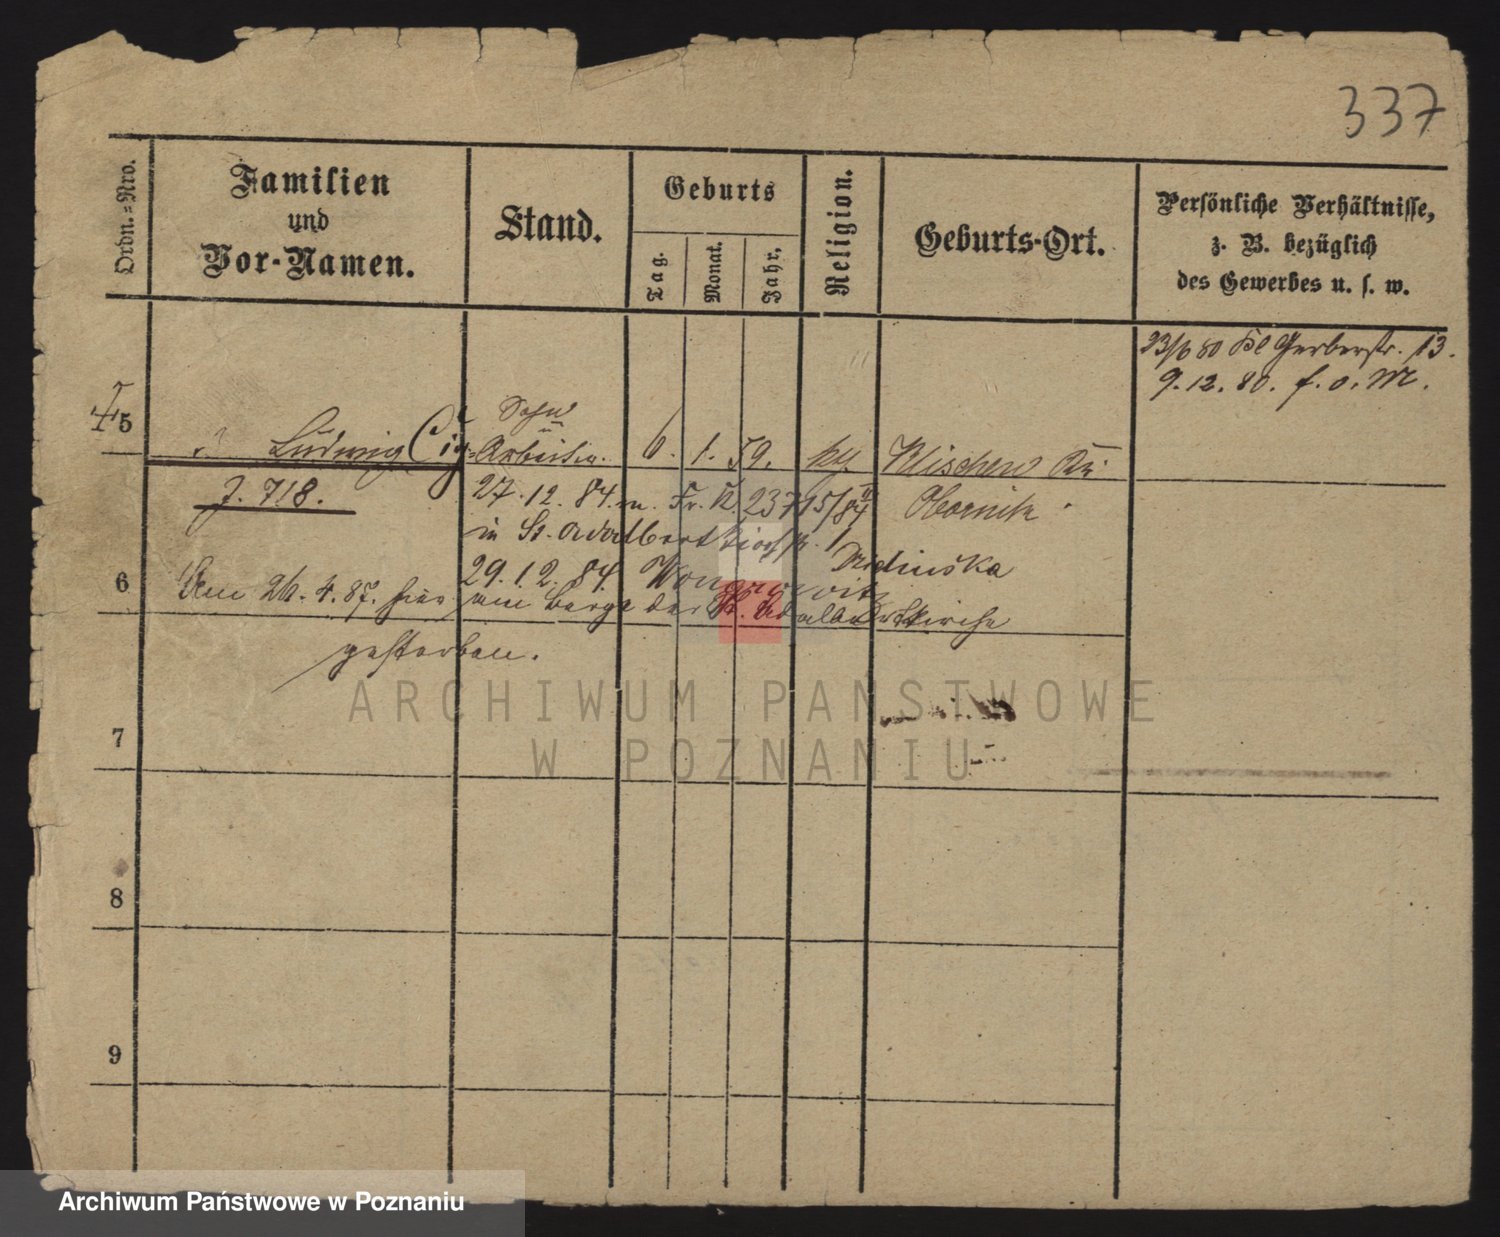 337
Ordn.=Nro.
Familien
und
Vor-Namen.
Stand.
Geburts
Tag.
Monat.
Jahr.
Religion.
Geburts-Ort.
Persönliche Verhältnisse,
z. B. bezüglich
des Gewerbes u. s. w.
23/6 80 Kl Gerberstr. 13.
9. 12. 80. f. o. M.
Sohn
5
Ludwig
Arbeiter.
6. 1. 59.
Klischewo
J. 718.
27. 12. 84. m. Fr. K. 237 15/84
Obornik
in St. Adalbertkirchstr. 1
6
29. 12. 84. Wongrowitz
Am 26. 4. 87. hier am Berge der St. Adalbertkirche
gestorben.
7
8
9
ARCHIWUM PAŃSTWOWE
W POZNANIU
Archiwum Państwowe w Poznaniu